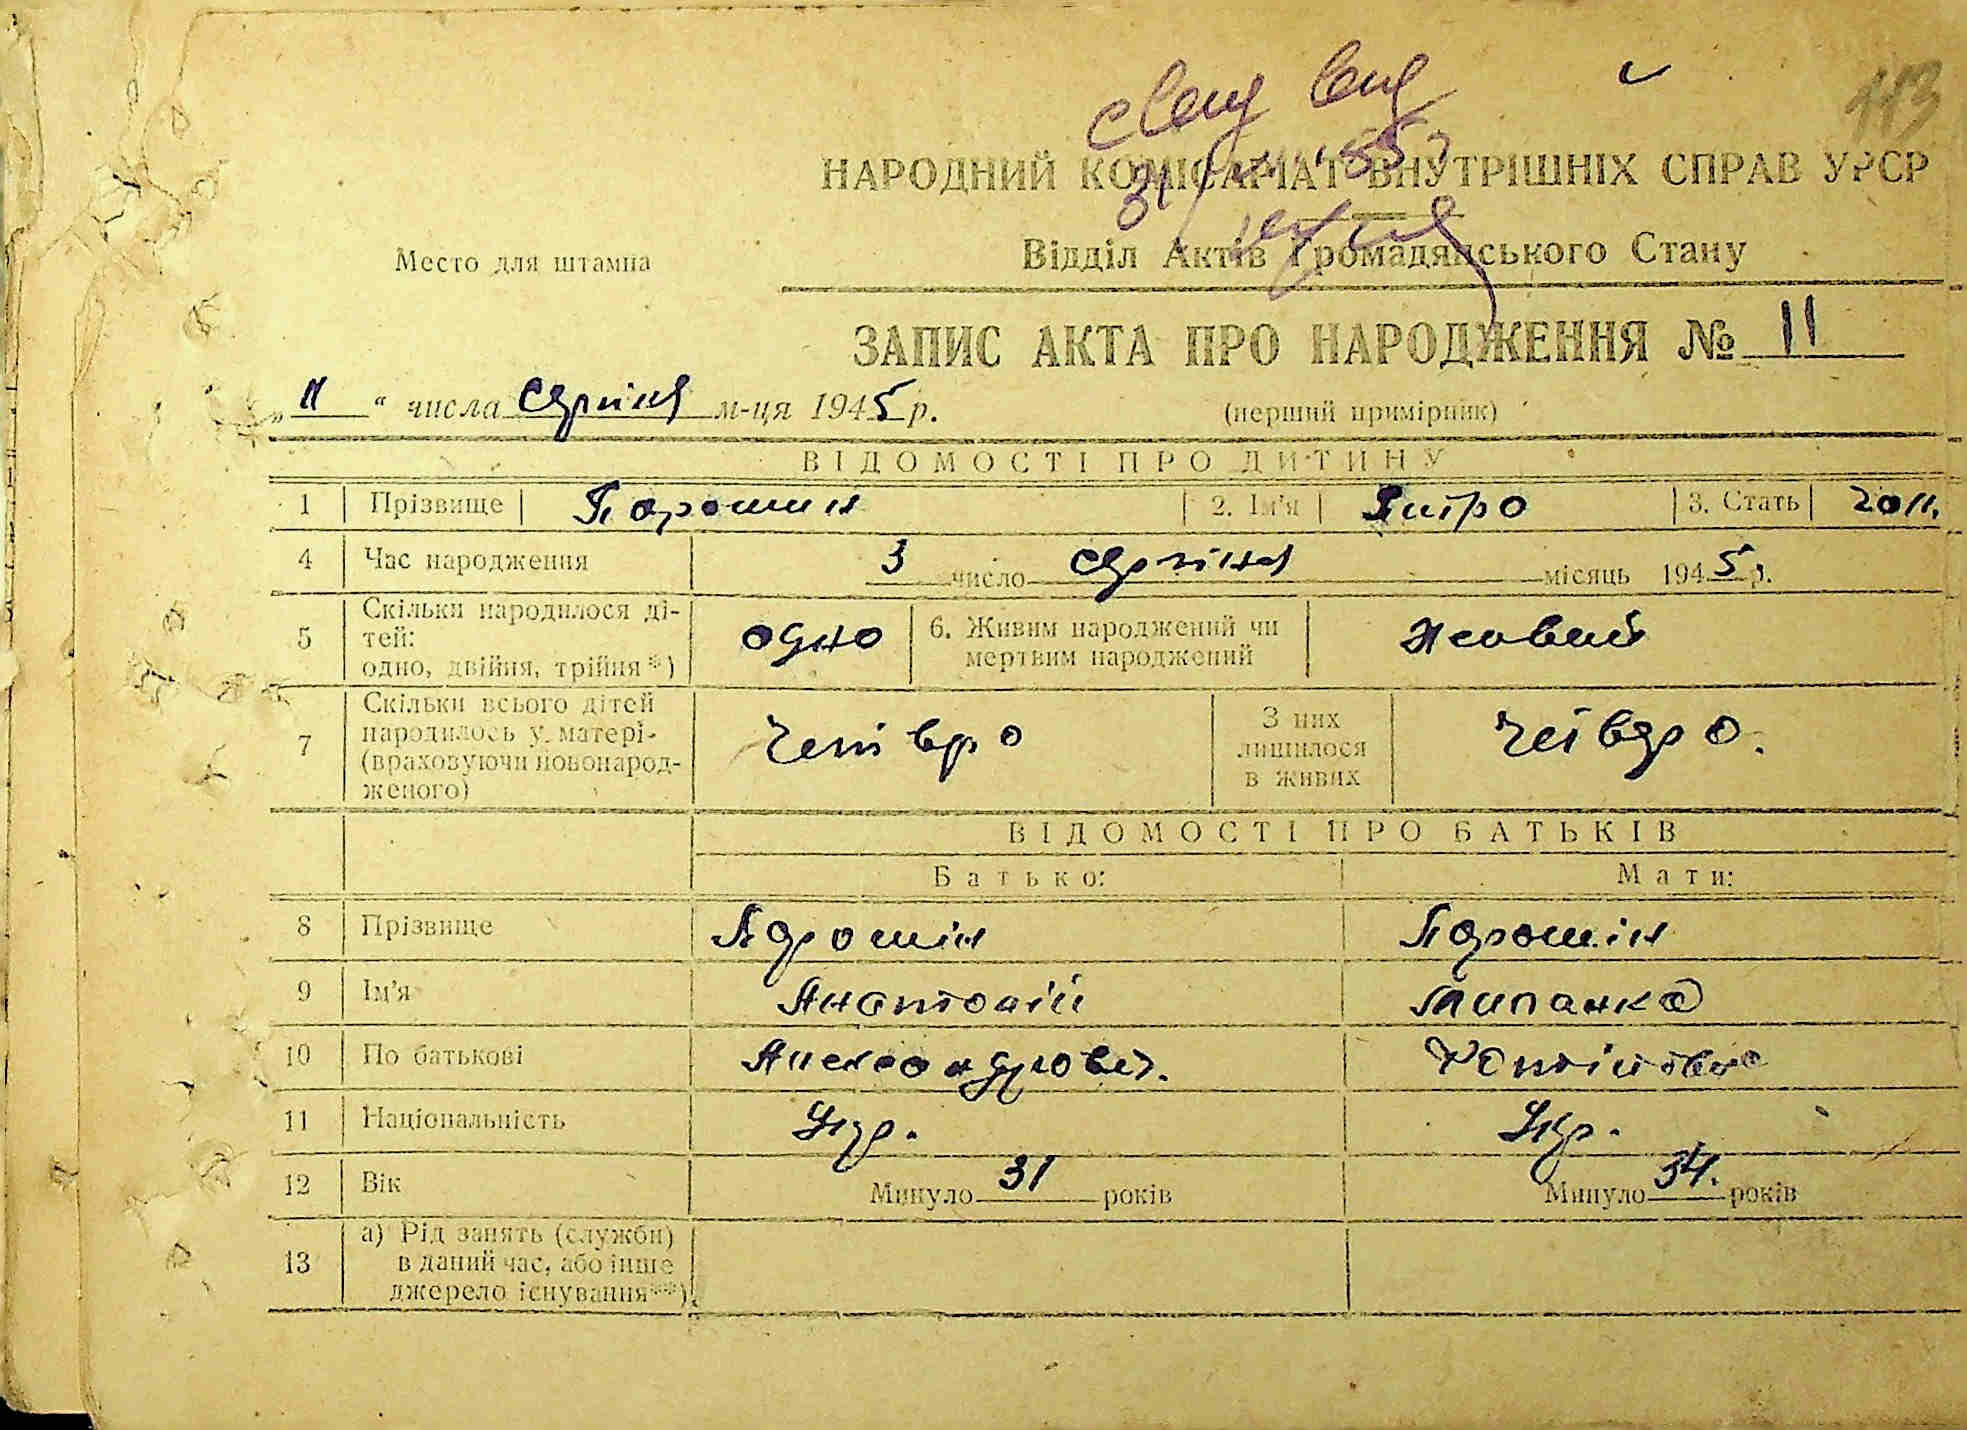 113
НАРОДНИЙ КОМІСАРІАТ ВНУТРІШНІХ СПРАВ УРСР
Место для штампа
Відділ Актів Громадянського Стану
ЗАПИС АКТА ПРО НАРОДЖЕННЯ № 11
„ 11 “ числа серпня м-ця 1945 р. (перший примірник)
ВІДОМОСТІ ПРО ДИТИНУ
1 Прізвище Парошин 2. Ім'я 3. Стать чол.
4 Час народження 3 число серпня місяць 1945 р.
5 Скільки народилося ді-
тей:
одно, двійня, трійня*) одно 6. Живим народжений чи
мертвим народжений живий
7 Скільки всього дітей
народилось у матері
(враховуючи новонарод-
женого) четвро З них
лишилося
в живих четверо.
ВІДОМОСТІ ПРО БАТЬКІВ
Батько: Мати:
8 Прізвище Парошін Парошін
9 Ім'я Анатолій
10 По батькові Александрович.
11 Національність Укр. Укр.
12 Вік Минуло 31 років Минуло 34. років
13 а) Рід занять (служби)
в даний час, або інше
джерело існування**)